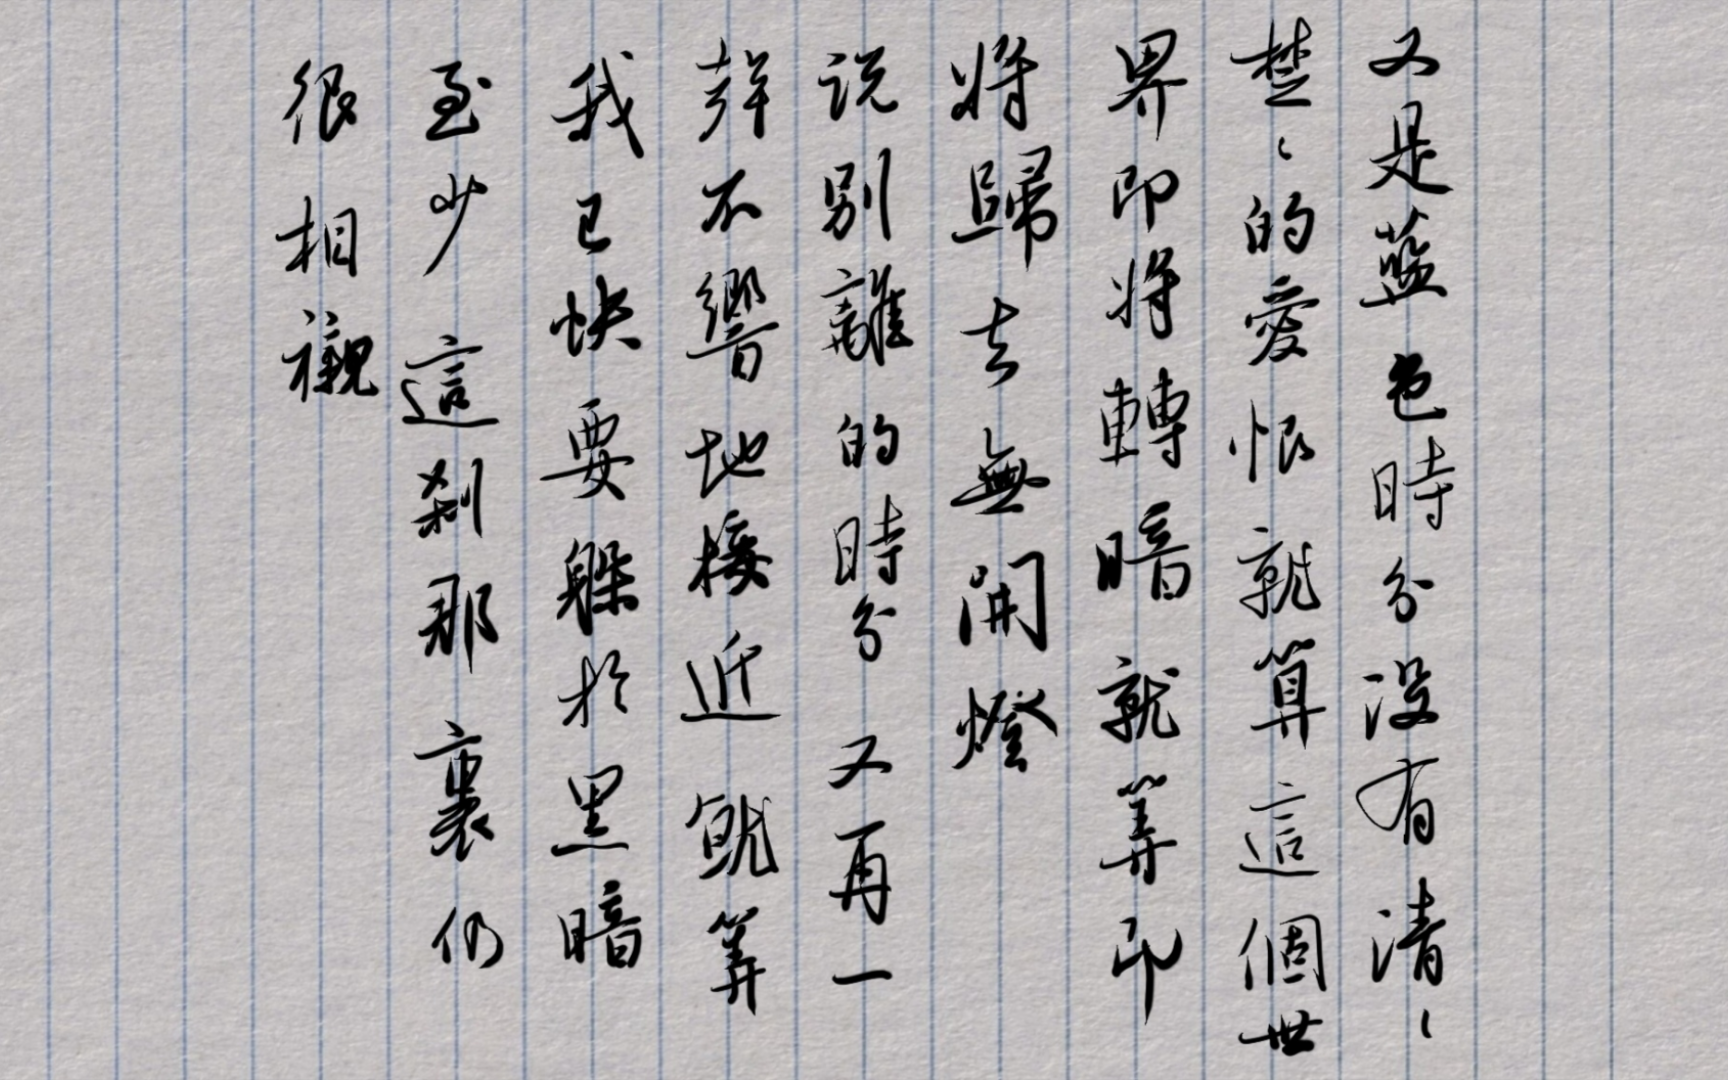 又是藍色時分没有清、
楚、的愛恨就算這個世
界即将轉暗就算即
将歸去無開燈
说別離的時分又再一
聲不響地接近就算
我已快要躲於黑暗
至少這刹那裏仍
很相襯